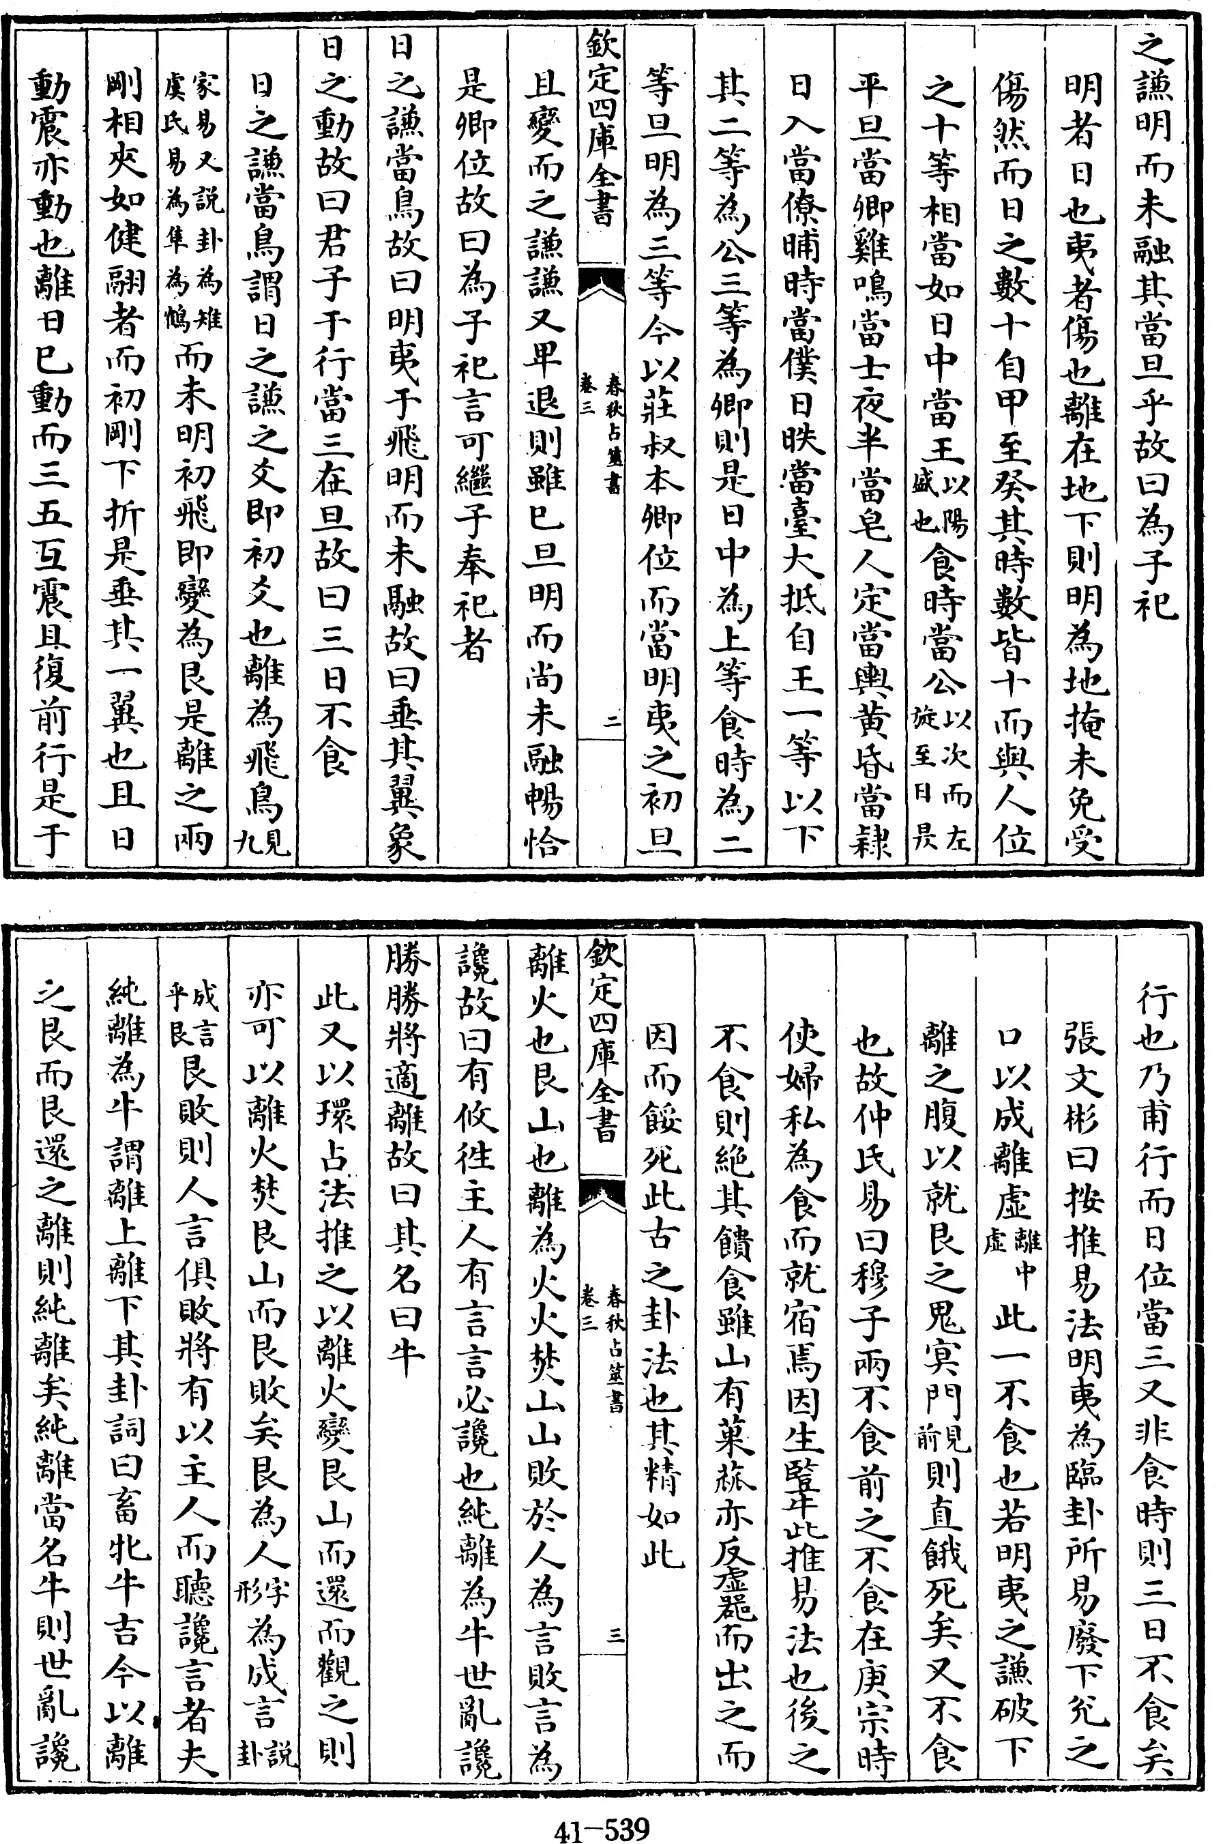 之謙明而未融其當旦乎故曰為子祀
明者日也夷者傷也離在地下則明為地掩未免受
傷然而日之數十自甲至癸其時數皆十而與人位
之十等相當如日中當王以陽盛也食時當公以次而左旋至日昃
平旦當卿雞鳴當士夜半當皂人定當輿黃昏當隸
日入當僚晡時當僕日昳當臺大抵自王一等以下
其二等為公三等為卿則是日中為上等食時為二
等旦明為三等今以莊叔本卿位而當明夷之初旦
欽定四庫全書
春秋占筮書
卷三
二
且變而之謙謙又卑退則雖已旦明而尚未融暢恰
是卿位故曰為子祀言可繼子奉祀者
日之謙當鳥故曰明夷于飛明而未融故曰垂其翼象
日之動故曰君子于行當三在旦故曰三日不食
日之謙當鳥謂日之謙之爻即初爻也離為飛鳥見九
家易又説卦為雉虞氏易為隼為鵂而未明初飛即變為艮是離之兩
剛相夾如健翮者而初剛下折是垂其一翼也且日
動震亦動也離日已動而三五互震且復前行是于
行也乃甫行而日位當三又非食時則三日不食矣
張文彬曰按推易法明夷為臨卦所易廢下兊之
口以成離虛離中虛此一不食也若明夷之謙破下
離之腹以就艮之鬼冥門見前則直餓死矣又不食
也故仲氏易曰穆子兩不食前之不食在庚宗時
使婦私為食而就宿焉因生豎牛此推易法也後之
不食則絶其饋食雖山有菓蓏亦反虛器而出之而
因而餒死此古之卦法也其精如此
欽定四庫全書
春秋占筮書
卷三
三
離火也艮山也離為火火焚山山敗於人為言敗言為
讒故曰有攸往主人有言言必讒也純離為牛世亂讒
勝勝將適離故曰其名曰牛
此又以環占法推之以離火變艮山而還而觀之則
亦可以離火焚艮山而艮敗矣艮為人字形為成言説卦
成言乎艮艮敗則人言俱敗將有以主人而聽讒言者夫
純離為牛謂離上離下其卦詞曰畜牝牛吉今以離
之艮而艮還之離則純離矣純離當名牛則世亂讒
41-539